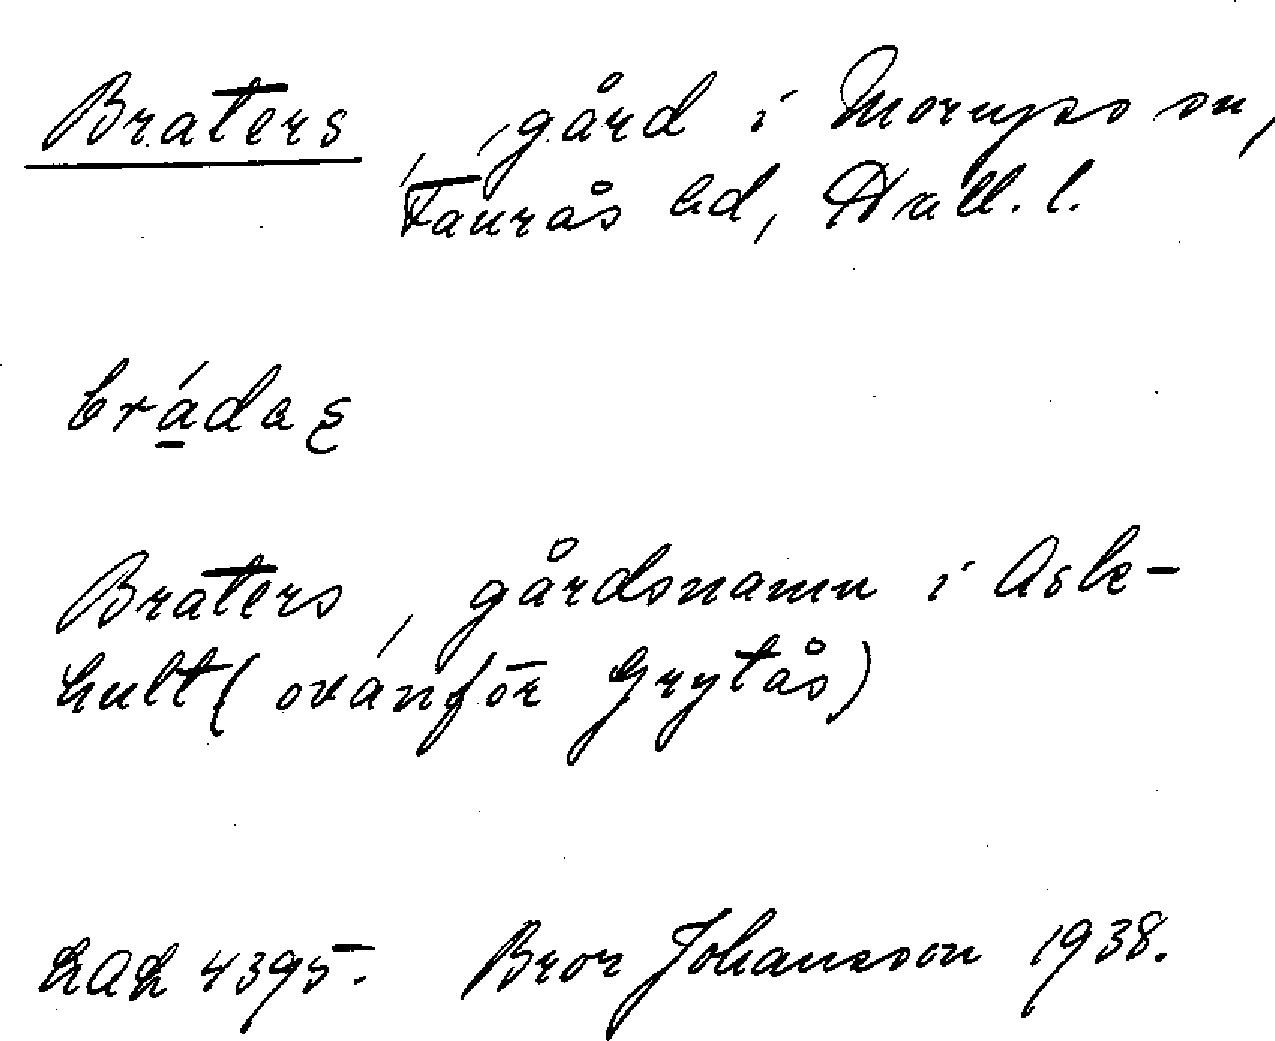 Braters, gård i Morups sn,
Faurås hd, Hall. l.
brádaş
Braters, gårdsnamn i Ask-
hult (ovanför Grytås)
LAL 4395. Bror Johansson 1938.